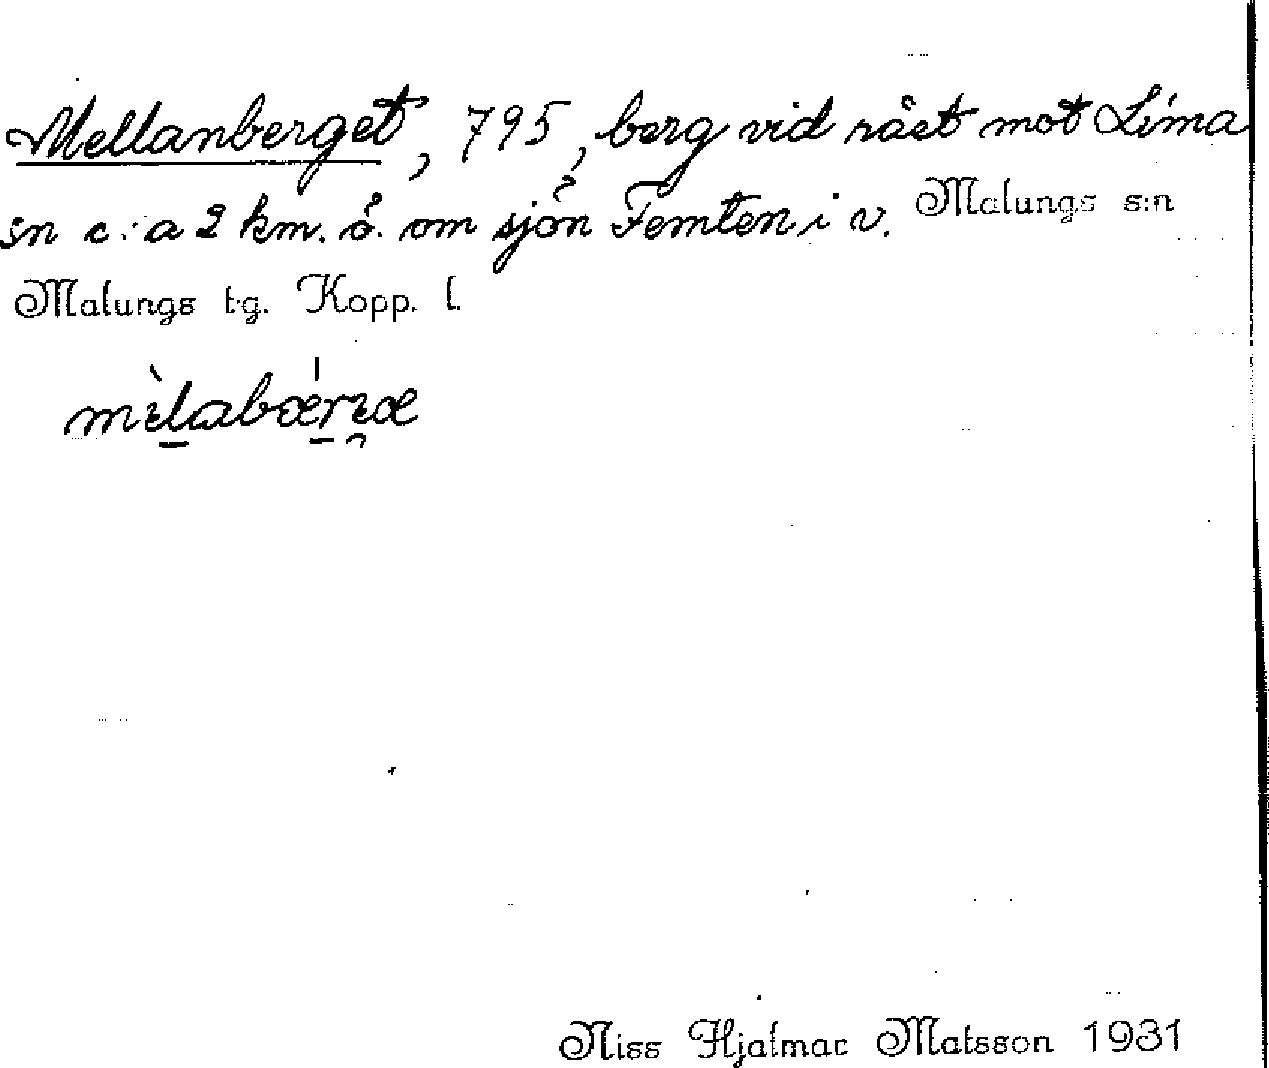 Mellanberget, 795, berg vid rået mot Lima
sn c:a 2 km. ö. om sjön Femten i v. Malungs s:n
Malungs tg. Kopp. l.
Niss Hjalmar Matsson 1931